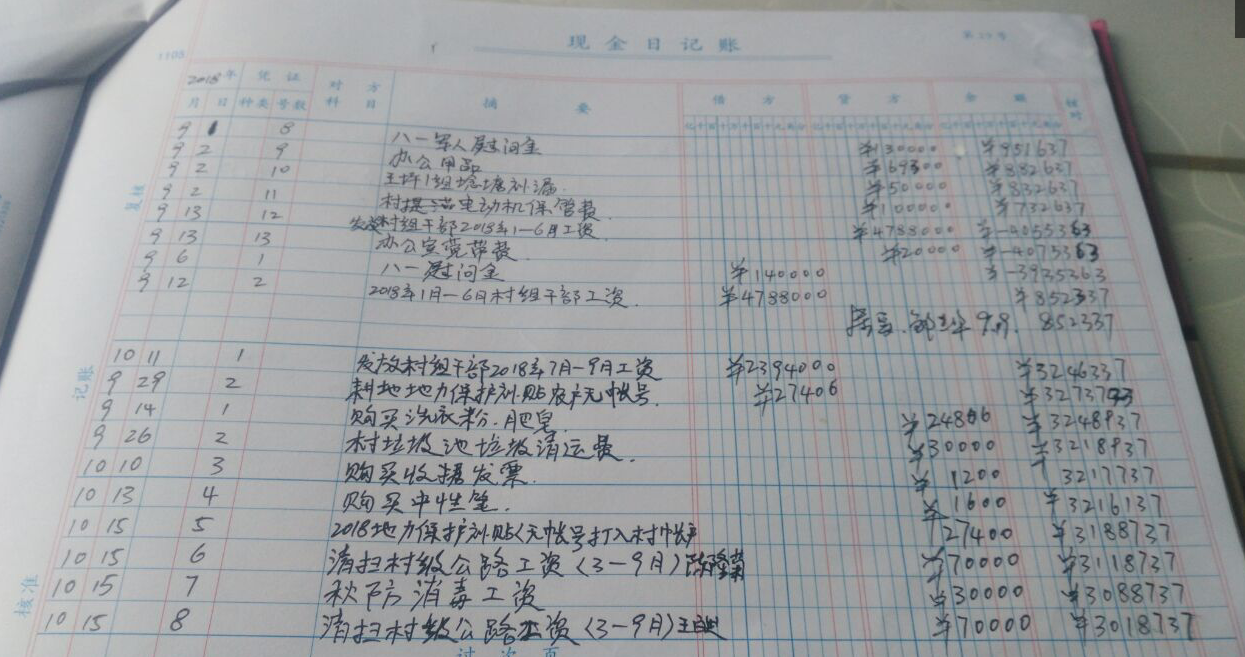 现金日记账
1103
2018年 凭证 对方科目 摘要 借方 贷方 余额 核对
月 日 种类 号数
9 1 8 八一军人慰问金 ¥130000 ¥951637
9 2 9 办公用品 ¥69300 ¥882637
9 2 10 王坪1组 补漏 ¥50000 ¥832637
9 2 11 村提灌电动机保管费 ¥100000 ¥732637
9 13 12 发放村组干部2018年1-6月工资 ¥4788000 ¥-4055363
9 13 13 办公室宽带费 ¥20000 ¥-4075363
9 6 1 八一慰问金 ¥140000 ¥-3935363
9 12 2 2018年1月-6日村组干部工资 ¥4788000 ¥852337
9月. 852337
10 11 1 发放村组干部2018年7月-9月工资 ¥2394000 ¥3246337
9 29 2 耕地地力保护补贴农户无帐号 ¥27406 ¥3273793
9 14 1 购买洗衣粉.肥皂 ¥24806 ¥3248937
9 26 2 村垃圾池垃圾清运费. ¥30000 ¥3218937
10 10 3 购买收据发票 ¥1200 3217737
10 13 4 购买中性笔. ¥1600 ¥3216137
10 15 5 2018地力保护补贴(无帐号打入村帐户 27400 ¥3188737
10 15 6 清扫村级公路工资(3-9月) ¥70000 ¥3118737
10 15 7 秋防消毒工资 ¥30000 ¥3088737
10 15 8 清扫村级公路工资(3-9月) ¥70000 ¥3018737
过次页
复核
记账
核准